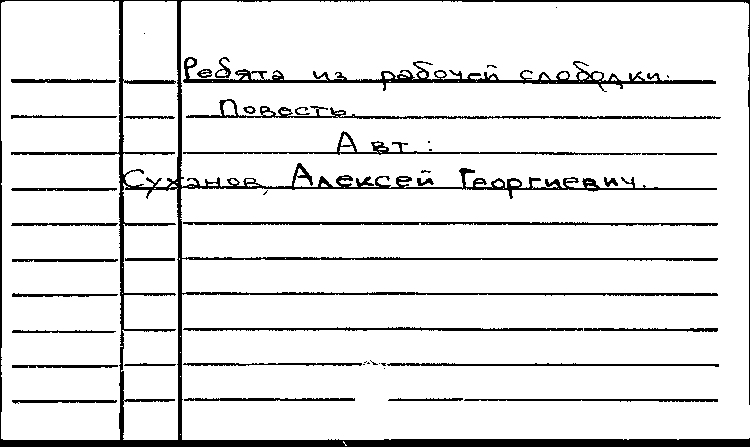 Ребята из рабочей слободки.
Повесть.
Авт.:
Суханов, Алексей Георгиевич.